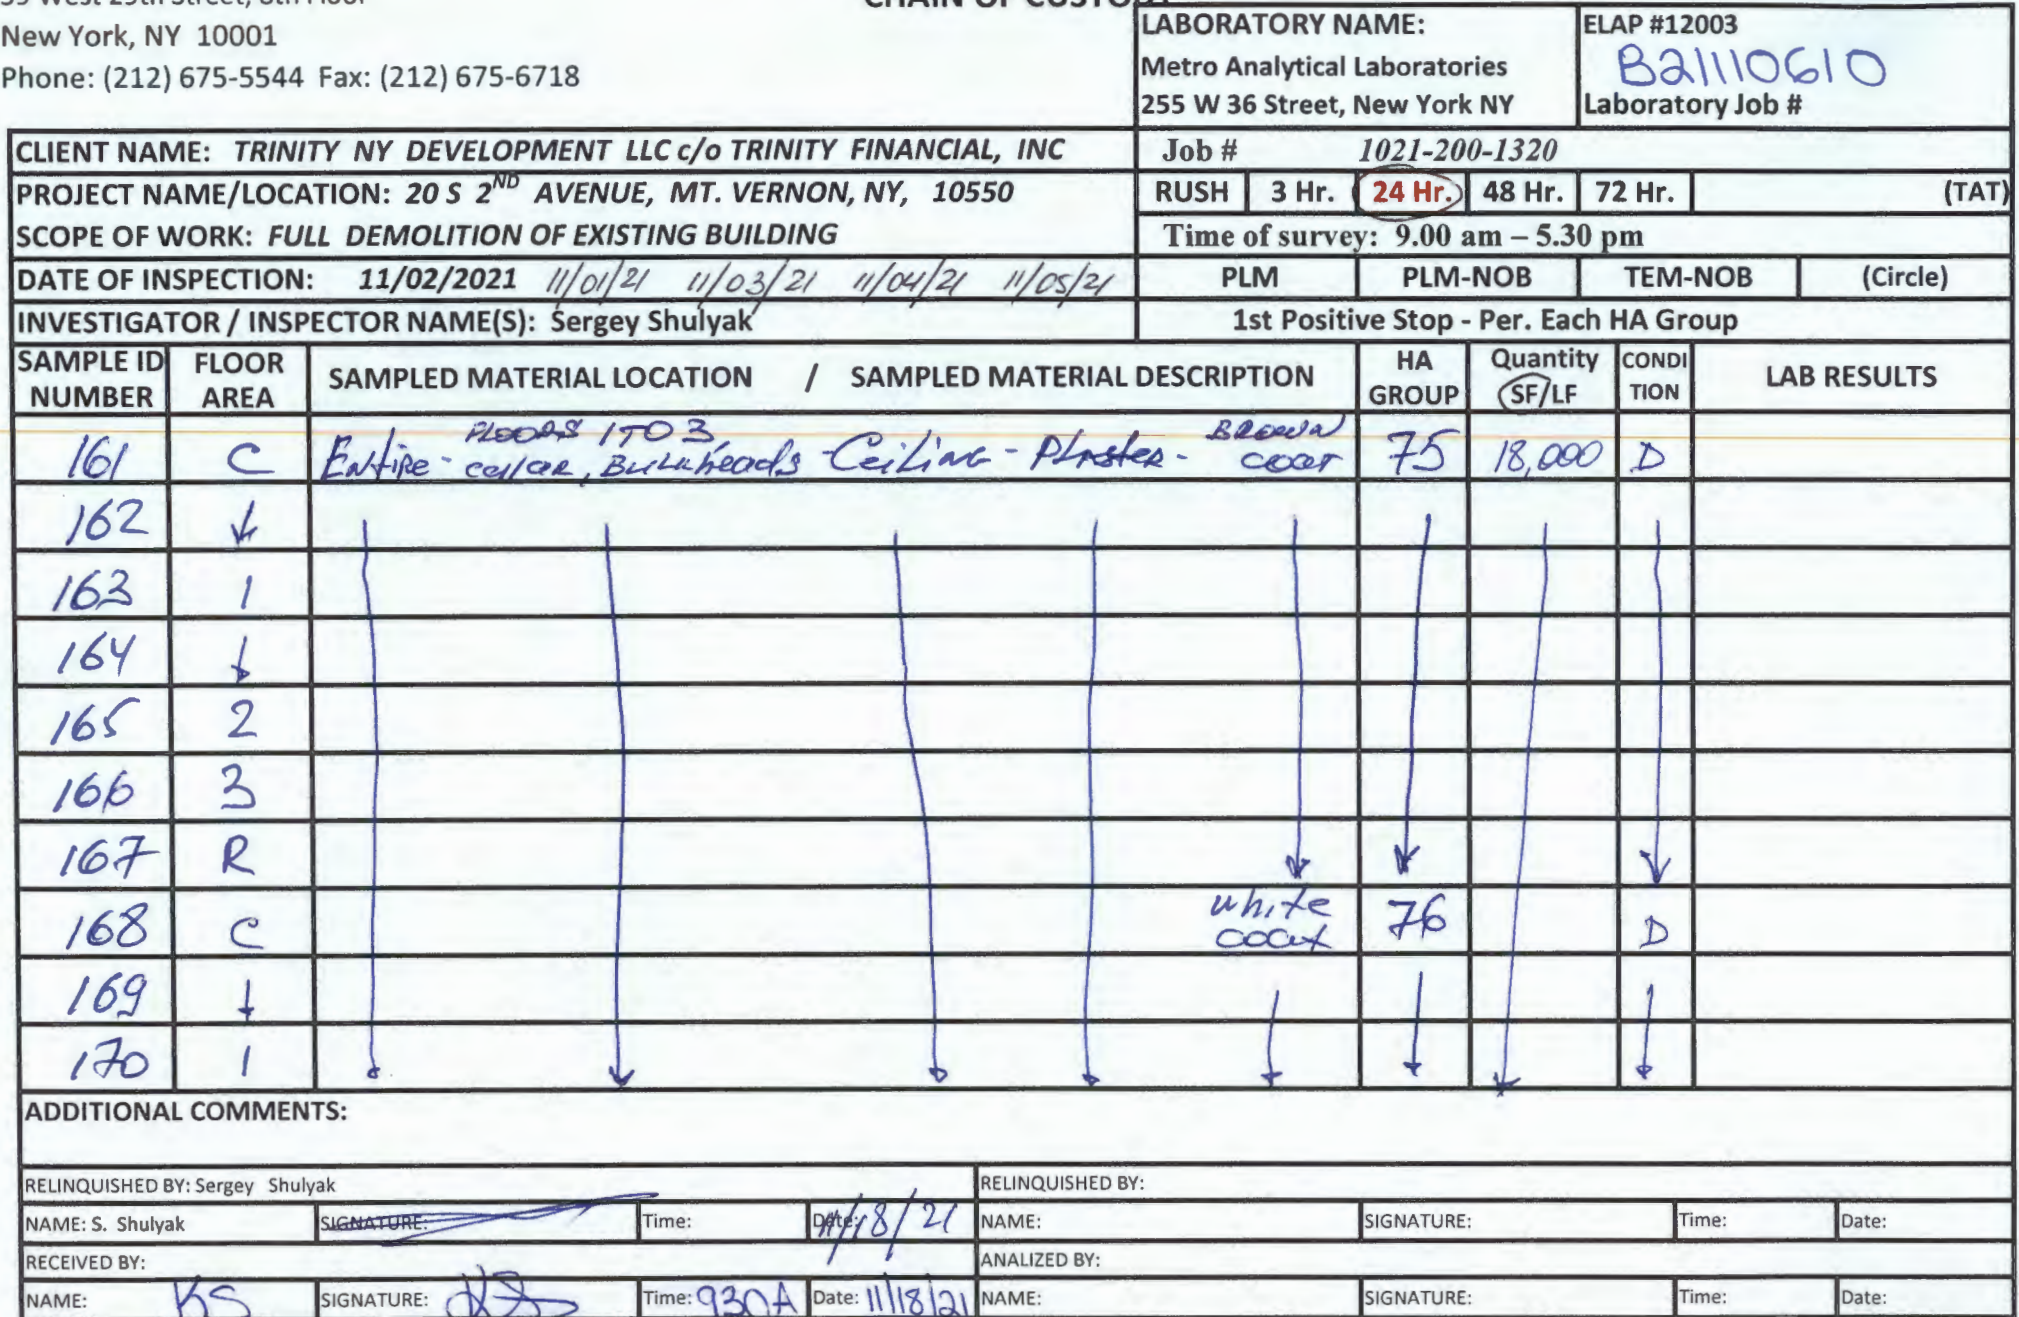 New York, NY 10001
Phone: (212) 675-5544 Fax: (212) 675-6718
CHAIN OF CUSTODY
LABORATORY NAME:
Metro Analytical Laboratories
255 W 36 Street, New York NY
ELAP #12003
B21110610
Laboratory Job #
CLIENT NAME: TRINITY NY DEVELOPMENT LLC c/o TRINITY FINANCIAL, INC
Job # 1021-200-1320
PROJECT NAME/LOCATION: 20 S 2ND AVENUE, MT. VERNON, NY, 10550
RUSH 3 Hr. 24 Hr. 48 Hr. 72 Hr. (TAT)
SCOPE OF WORK: FULL DEMOLITION OF EXISTING BUILDING
Time of survey: 9.00 am – 5.30 pm
DATE OF INSPECTION: 11/02/2021 11/01/21 11/03/21 11/04/21 11/05/21
PLM PLM-NOB TEM-NOB (Circle)
INVESTIGATOR / INSPECTOR NAME(S): Sergey Shulyak
1st Positive Stop - Per. Each HA Group
SAMPLE ID NUMBER FLOOR AREA SAMPLED MATERIAL LOCATION / SAMPLED MATERIAL DESCRIPTION HA GROUP Quantity SF/LF CONDI TION LAB RESULTS
161 C Entire - FLOORS 1 TO 3, cellar, Bulkheads - Ceiling - Plaster - BROWN coat 75 18,000 D
162
163 1
164
165 2
166 3
167 R
168 C white coat 76 D
169
170 1
ADDITIONAL COMMENTS:
RELINQUISHED BY: Sergey Shulyak
RELINQUISHED BY:
NAME: S. Shulyak SIGNATURE: Time: Date: 11/18/21
NAME: SIGNATURE: Time: Date:
RECEIVED BY:
ANALIZED BY:
NAME: KS SIGNATURE: KS Time: 930A Date: 11/18/21
NAME: SIGNATURE: Time: Date: